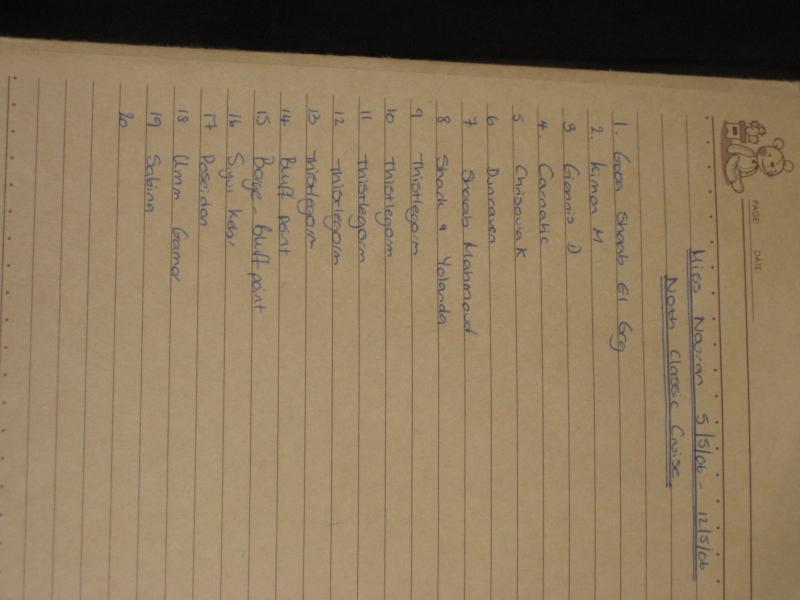 PAGE: DATE:
Miss Nouran 5/5/06 - 12/5/06
North Classic Cruise
1. Goba Shaab El Erg
2. Kimon M
3 Giannis D
4. Carnatic
5 Chrisoula K
6 Dunraven
7 Shaab Mahmoud
8 Shark & Yolanda
9 Thistlegorm
10 Thistlegorm
11 Thistlegorm
12 Thistlegorm
13 Thistlegorm
14 Bluff point
15 Barge - bluff point
16 Siyul Kebir
17 Poseidon
18 Umm Gamar
19 Sabina
20